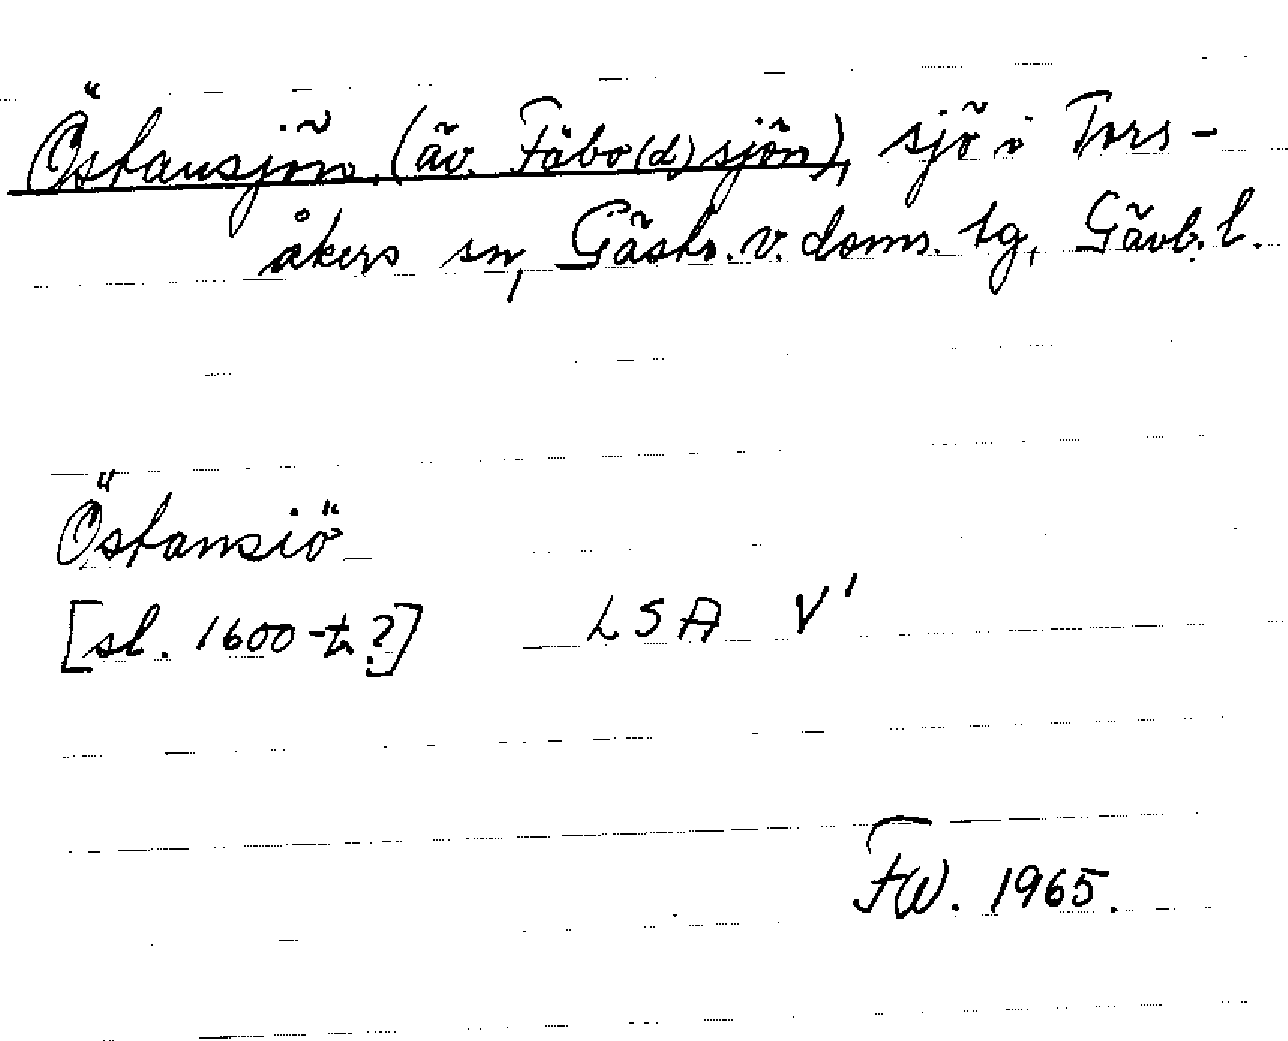 Östansjön (äv. Fäbo(d)sjön), sjö i Tors-
åkers sn, Gästr. v. doms. tg, Gävb. l.
Östansiö
[sl. 1600-t?] LSA V'
FW. 1965.